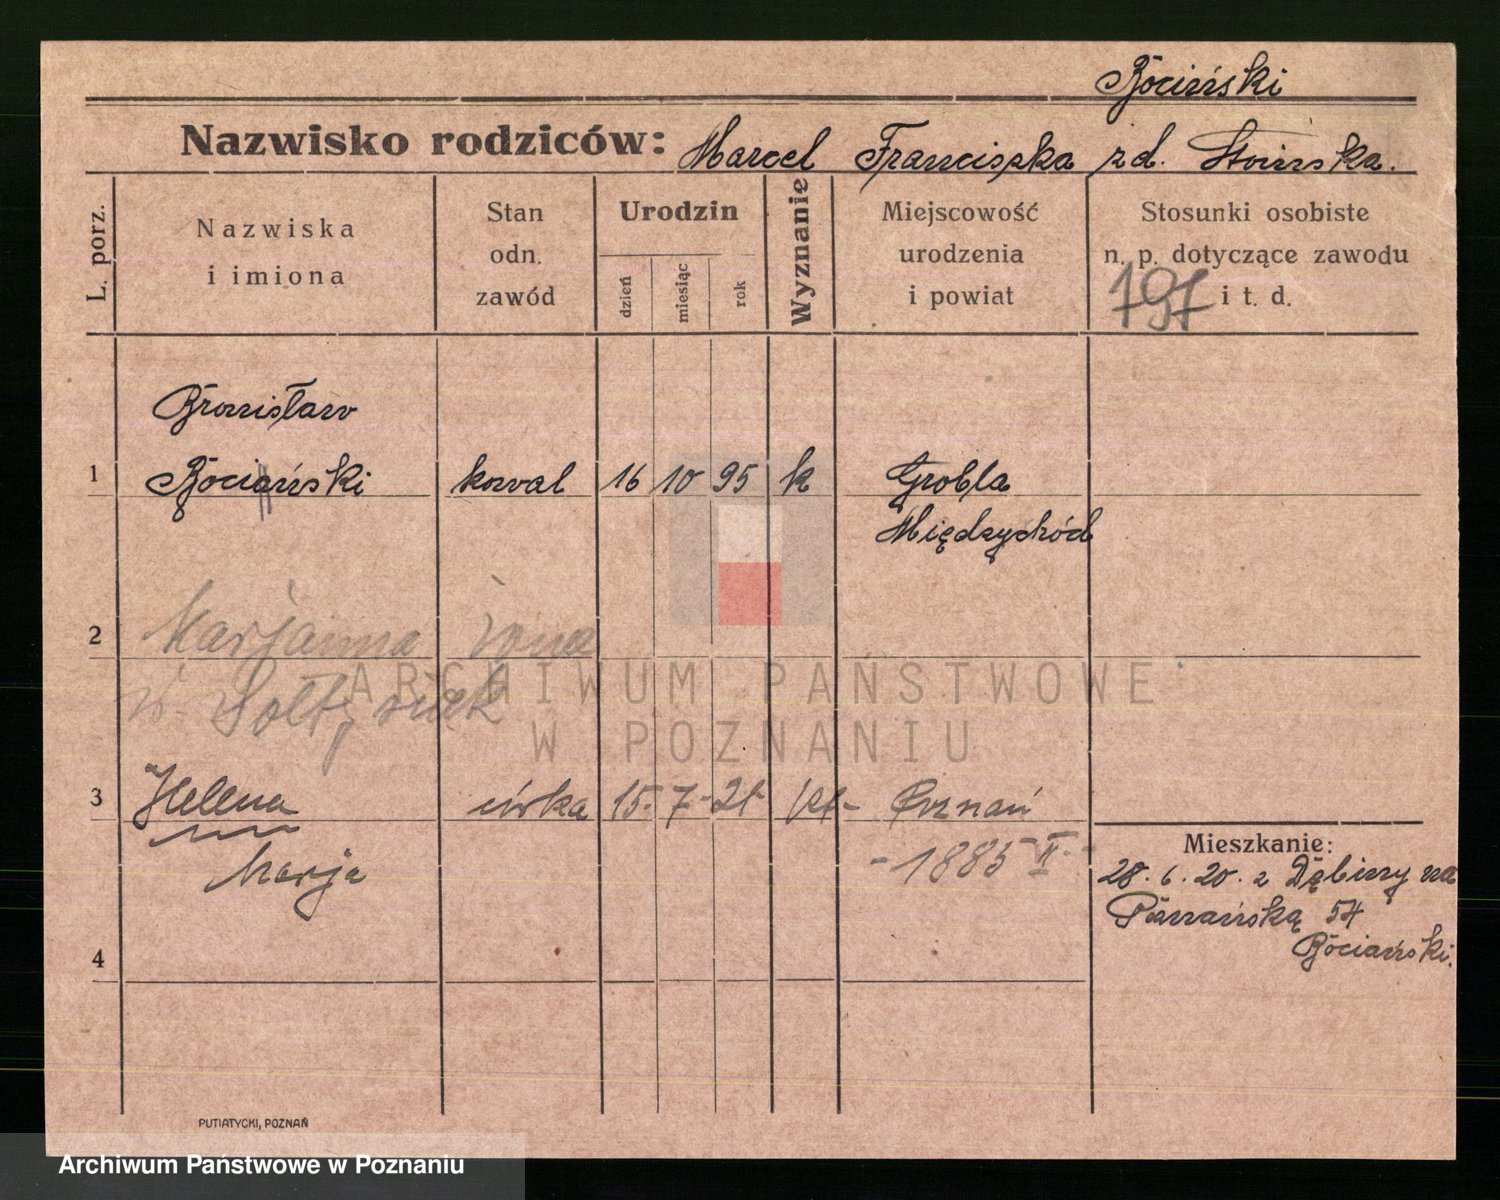 Bociński
Nazwisko rodziców: Marcel Franciszka zd. Stoińska.
L. porz.
Nazwiska
i imiona
Stan
odn.
zawód
Urodzin
dzień
miesiąc
rok
Wyznanie
Miejscowość
urodzenia
i powiat
Stosunki osobiste
n. p. dotyczące zawodu
i t. d.
797
Bronisław
1 Bociański kowal 16 10 95 k Grobla
Międzychód
2 Marjanna żona
ARCHIWUM PAŃSTWOWE
W POZNANIU
3 Helena córka 15 - 7 - 21 Poznań
Marja - 1885 - II -
Mieszkanie:
28. 6. 20. z Dębiny na
54
Bociański.
4
PUTIATYCKI, POZNAŃ
Archiwum Państwowe w Poznaniu